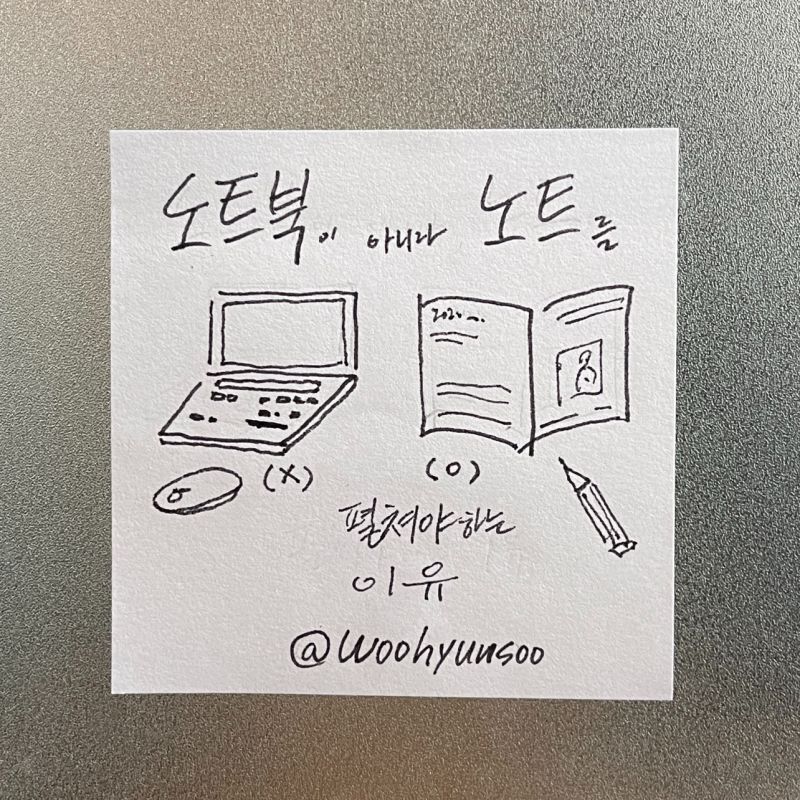 노트북이 아니라 노트를
(X) (O)
펼쳐야하는
이유
@woohyunsoo